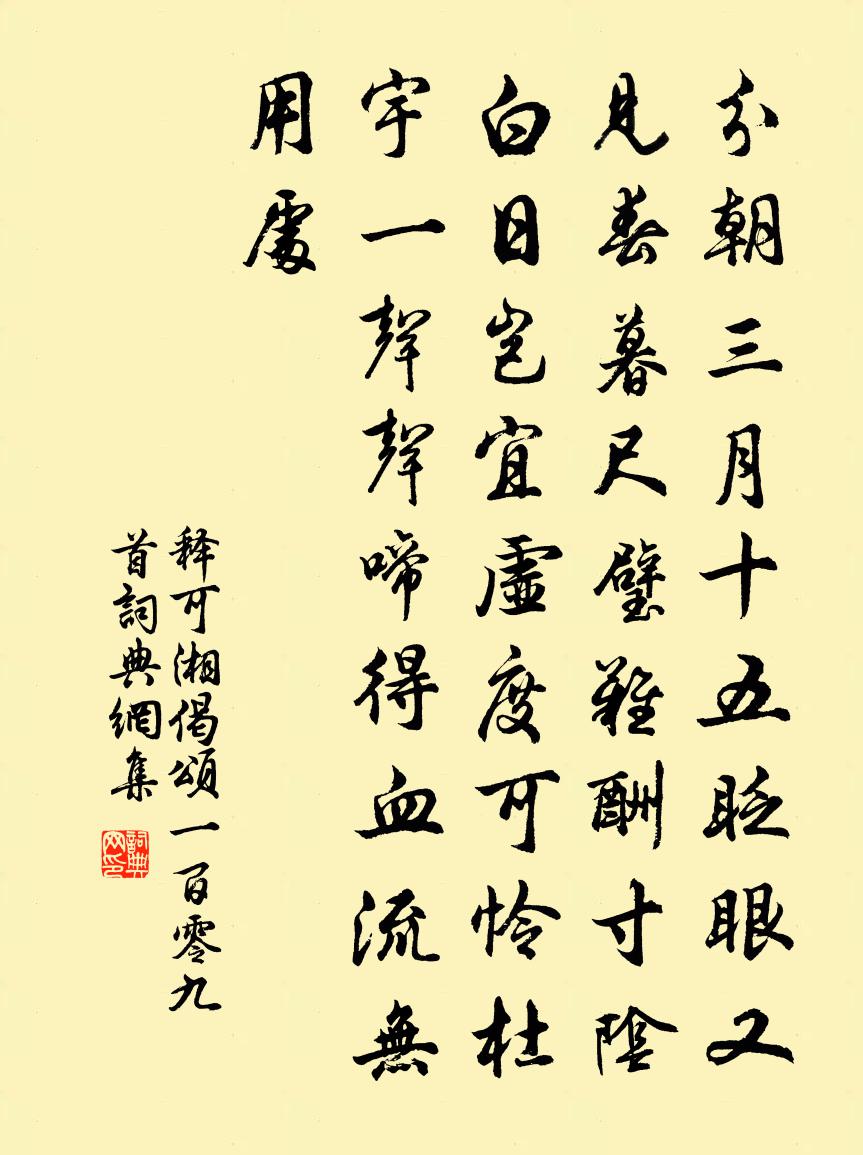 今朝三月十五眨眼又
見春暮尺璧難酬寸陰
白日豈宜虛度可怜杜
宇一聲聲啼得血流無
用處
释可湘偈頌一百零九
首詞典網集
詞典網印